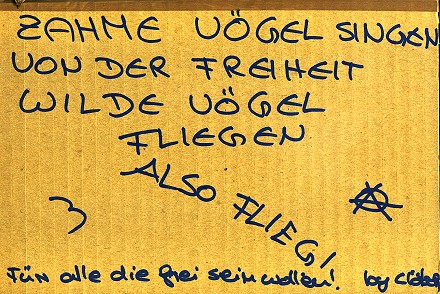 ZAHME VÖGEL SINGEN
VON DER FREIHEIT
WILDE VÖGEL
FLIEGEN
ALSO FLIEG!
Für alle die frei sein wollen! by